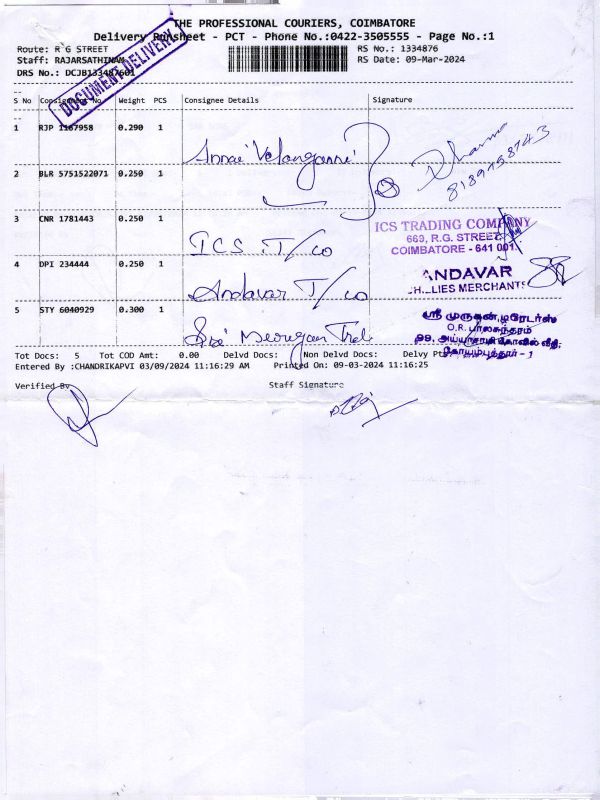 THE PROFESSIONAL COURIERS, COIMBATORE
Delivery Runsheet - PCT - Phone No.:0422-3505555 - Page No.:1
Route: R G STREET
RS No.: 1334876
Staff: RAJARSATHINAM
RS Date: 09-Mar-2024
DRS No.: DCJB133487601
DOCUMENT DELIVERY
S No Consignment No Weight PCS Consignee Details Signature
1 RJP 1167958 0.290 1 Annai Velanganni
Dharma
2 BLR 5751522071 0.250 1
3 CNR 1781443 0.250 1 I.C.S. T/co
ICS TRADING COMPANY
669, R.G. STREET,
COIMBATORE - 641 001.
4 DPI 234444 0.250 1 Andavar T/co
ANDAVAR
CHILLIES MERCHANTS
5 STY 6040929 0.300 1 Sri Murugan
ஸ்ரீ முருகன் டிரேடர்ஸ்
O.R. பாலசுந்தரம்
99, அய்யாசாமி கோவில் வீதி,
கோயமுத்தூர் - 1
Tot Docs: 5 Tot COD Amt: 0.00 Delvd Docs: Non Delvd Docs: Delvy Pt
Entered By :CHANDRIKAPVI 03/09/2024 11:16:29 AM Printed On: 09-03-2024 11:16:25
Verified By Staff Signature